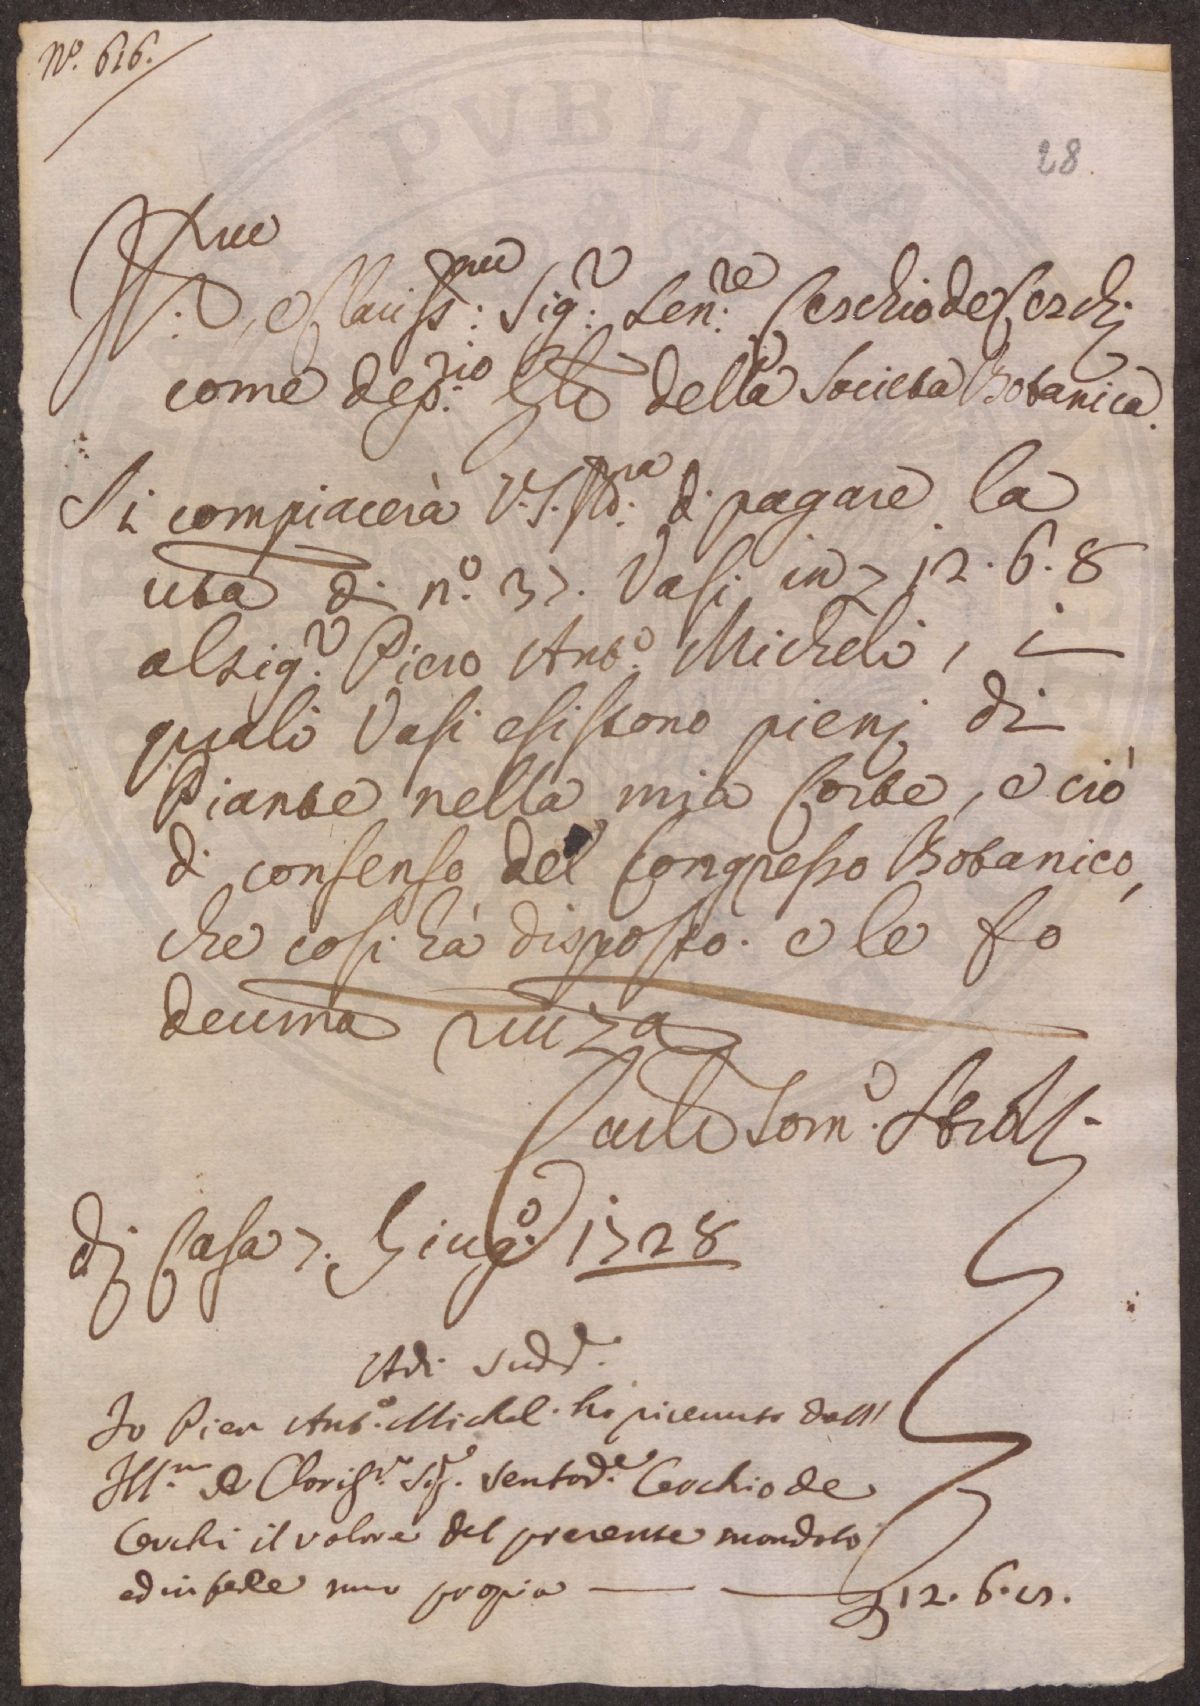 N.º 616.
28
Ill.mo e Clariss.mo Sig.r Sen.re Cerchio de Cerchj
come dep.rio della Societa Botanica.
Si compiacerà V.S. Ill.ma di pagare la
uta di n.º 37. Vasi in 7 12.6.8
al sig.r Piero Ant.o Micheli, i
quali Vasi esistono pienj di
Piante nella mia Corte, e ciò
di consenso del Congresso Botanico,
che cosi hà disposto. e le fo
deuma riuza
Carlo Tom.o Strozzi
dj Casa 7. Giug.o 1728
Adi sudd.o
Io Pier Ant.o Micheli ho riceuuto dall
Ill.mo e Clariss.mo Sig.r Senator.e Cerchio de
Cerchi il valore del presente mandato
ed in fede mno propia 12.6.8.